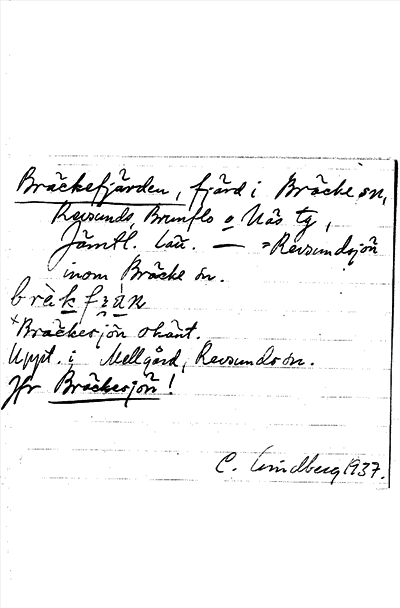 Bräckefjärden, fjärd i Bräcke sn,
Revsunds, Brunflo o Näs tg,
Jämtl. län. — = Revsundsjön
inom Bräcke sn.
brèkfɜ̀n
×Bräckesjön okänt.
Uppt. i Mellgård, Revsunds sn.
Jfr Bräckesjön!
C. Lindberg 1937.